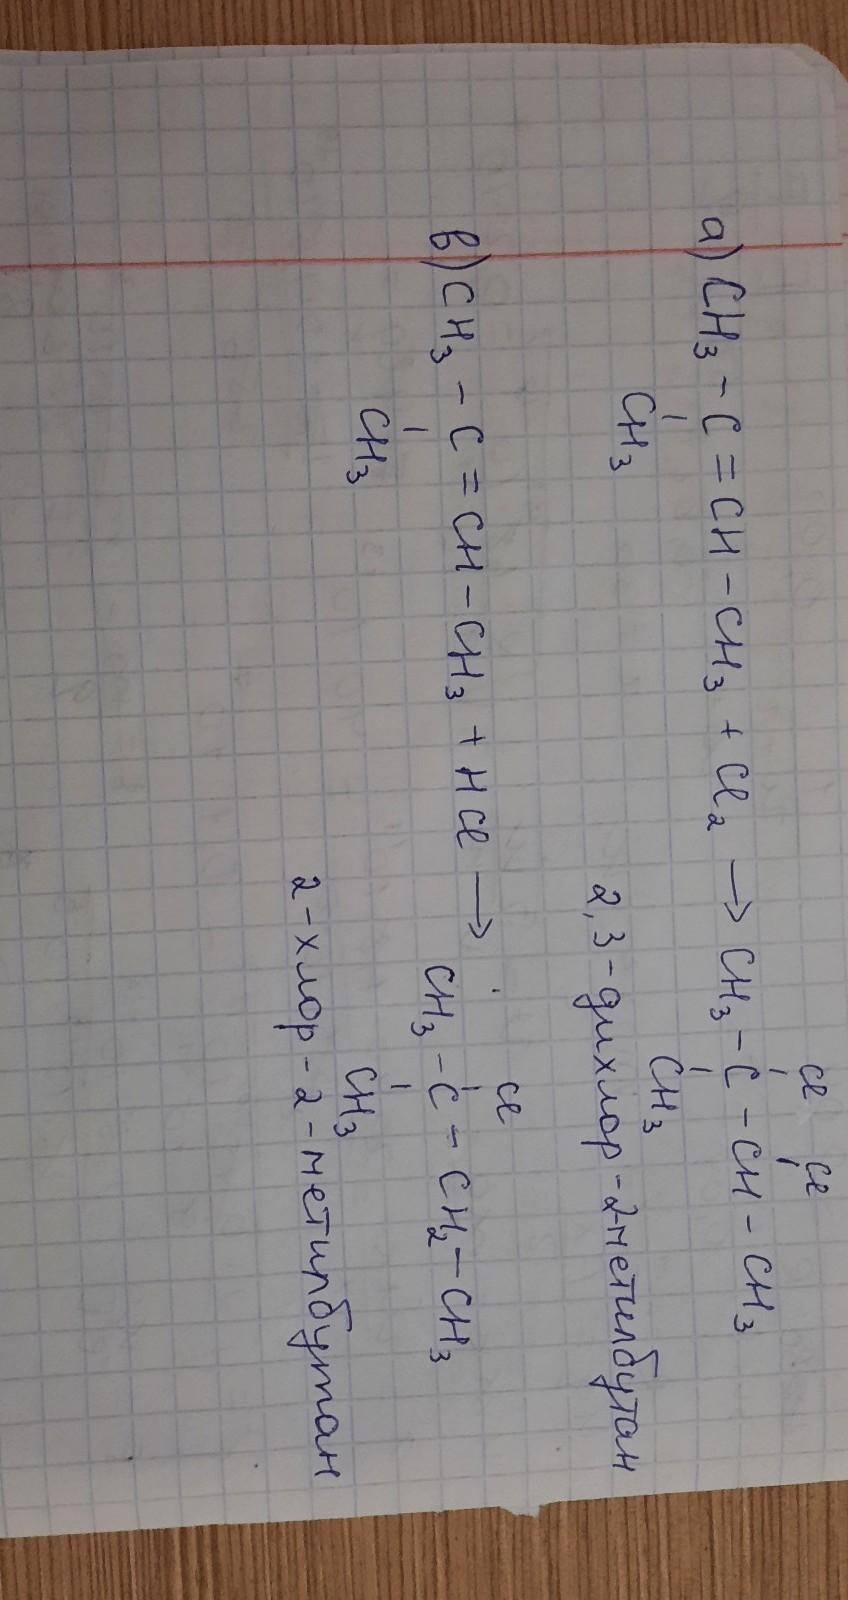 Cl Cl
а) CH₃ - C = CH - CH₃ + Cl₂ → CH₃ - C - CH - CH₃
CH₃ CH₃
2,3-дихлор-2-метилбутан
Cl
в) CH₃ - C = CH - CH₃ + HCl → CH₃ - C - CH₂ - CH₃
CH₃ CH₃
2-хлор-2-метилбутан